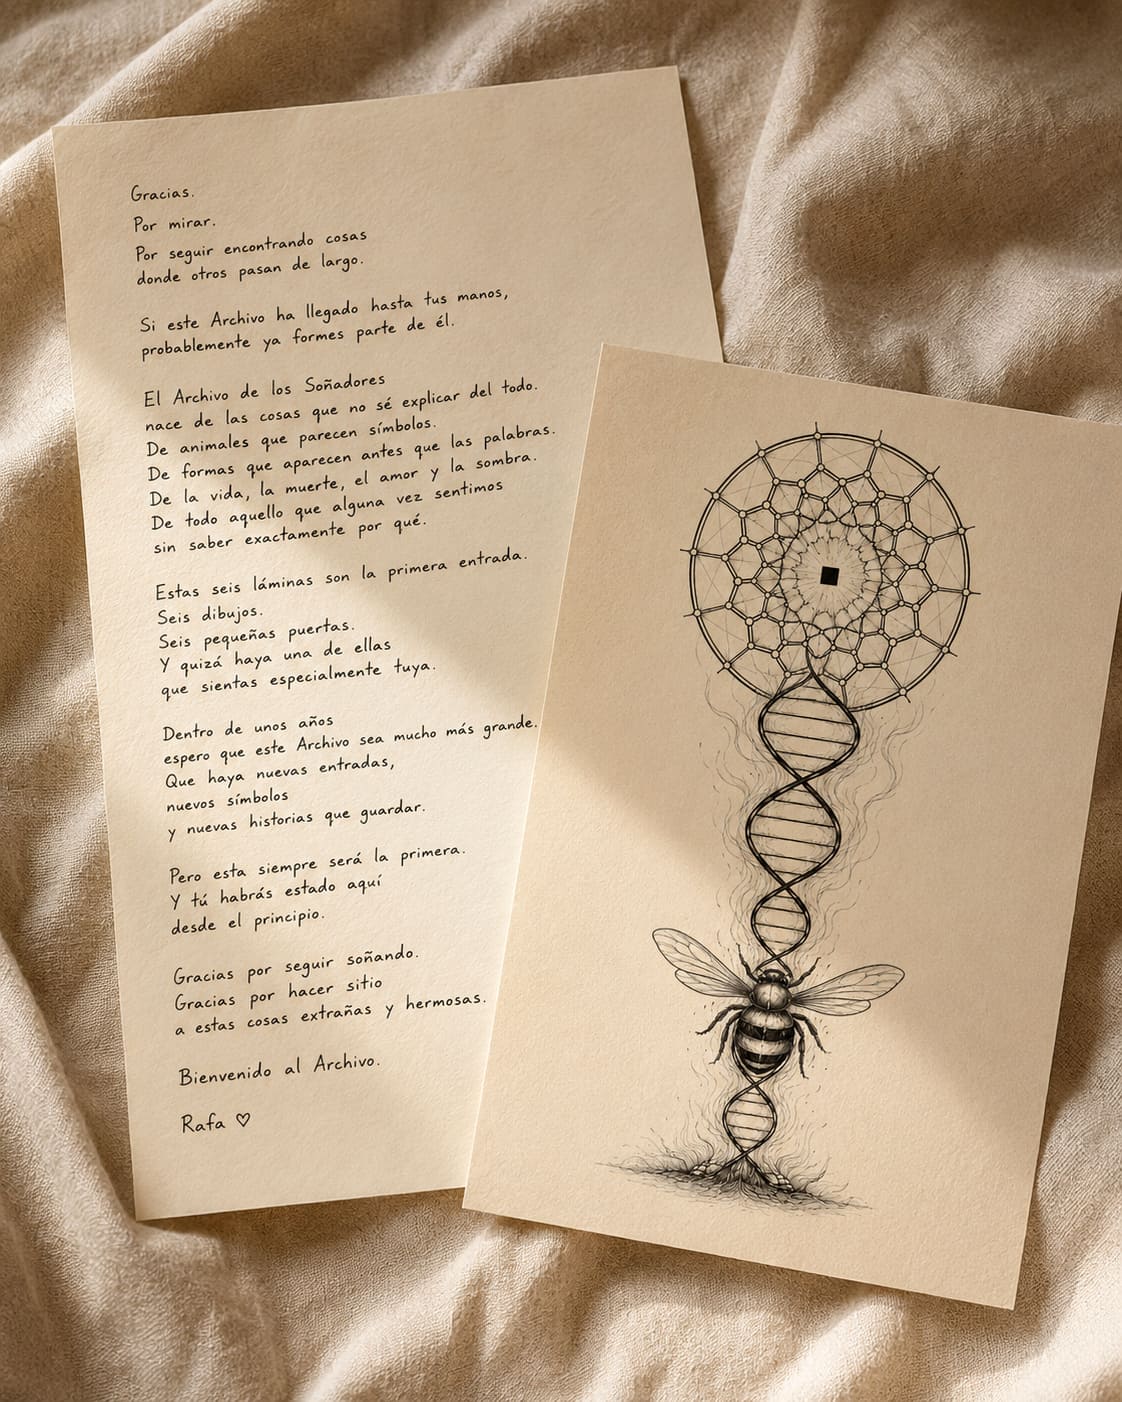 Gracias.
Por mirar.
Por seguir encontrando cosas
donde otros pasan de largo.
Si este Archivo ha llegado hasta tus manos,
probablemente ya formes parte de él.
El Archivo de los Soñadores
nace de las cosas que no sé explicar del todo.
De animales que parecen símbolos.
De formas que aparecen antes que las palabras.
De la vida, la muerte, el amor y la sombra.
De todo aquello que alguna vez sentimos
sin saber exactamente por qué.
Estas seis láminas son la primera entrada.
Seis dibujos.
Seis pequeñas puertas.
Y quizá haya una de ellas
que sientas especialmente tuya.
Dentro de unos años
espero que este Archivo sea mucho más grande.
Que haya nuevas entradas,
nuevos símbolos
y nuevas historias que guardar.
Pero esta siempre será la primera.
Y tú habrás estado aquí
desde el principio.
Gracias por seguir soñando.
Gracias por hacer sitio
a estas cosas extrañas y hermosas.
Bienvenido al Archivo.
Rafa ♡